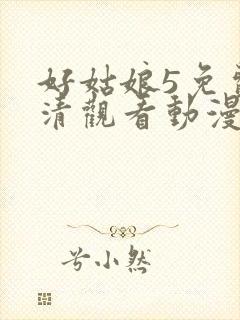 好姑娘5免
清觀看動漫
兮小然